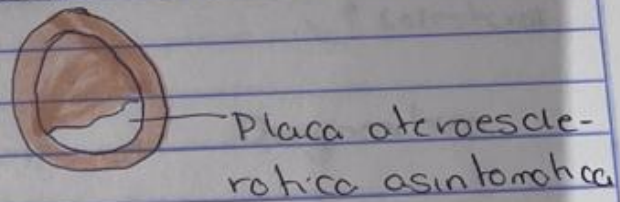 Placa ateroescle-
rotica asintomatica